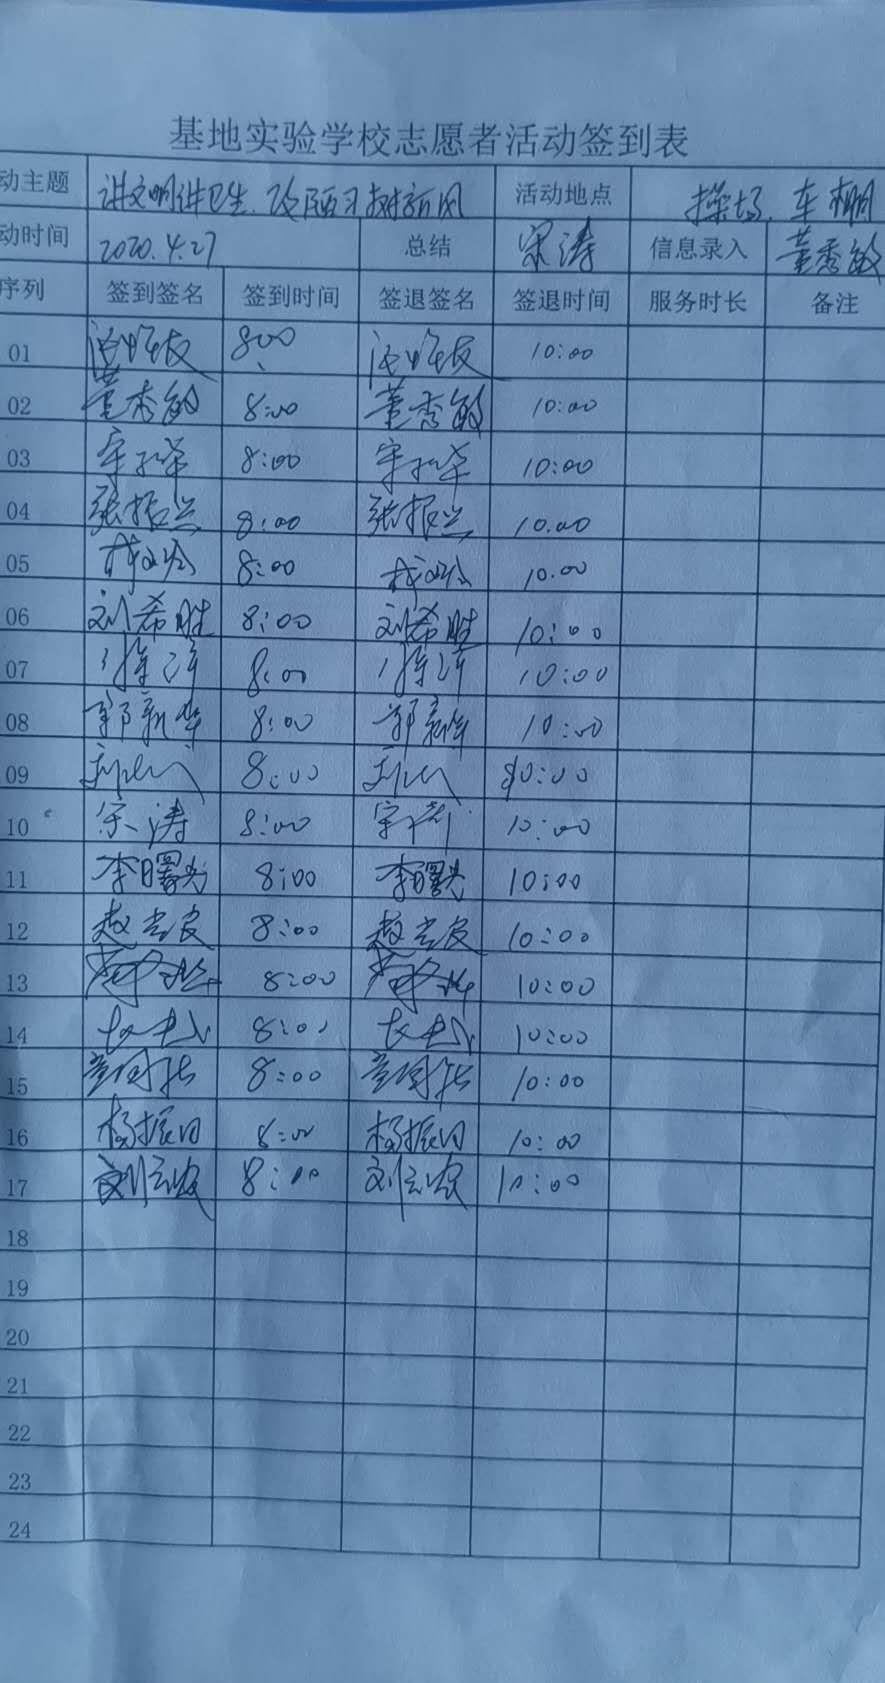 基地实验学校志愿者活动签到表
动主题 讲文明讲卫生、改陋习树新风 活动地点 操场、车棚
动时间 2020.4.27 总结 宋涛 信息录入 董秀敏
序列 签到签名 签到时间 签退签名 签退时间 服务时长 备注
01 8:00 10:00
02 董秀敏 8:00 董秀敏 10:00
03 8:00 10:00
04 张振兰 8:00 张振兰 10.00
05 8:00 10.00
06 刘希胜 8:00 刘希胜 10:00
07 8:00 10:00
08 郭新华 8:00 郭新华 10:00
09 8:00 10:00
10 宋涛 8:00 宋涛 10:00
11 李曙光 8:00 李曙光 10:00
12 赵吉良 8:00 赵吉良 10:00
13 8:00 10:00
14 8:00 10:00
15 8:00 10:00
16 杨振田 8:00 杨振田 10:00
17 8:00 10:00
18
19
20
21
22
23
24